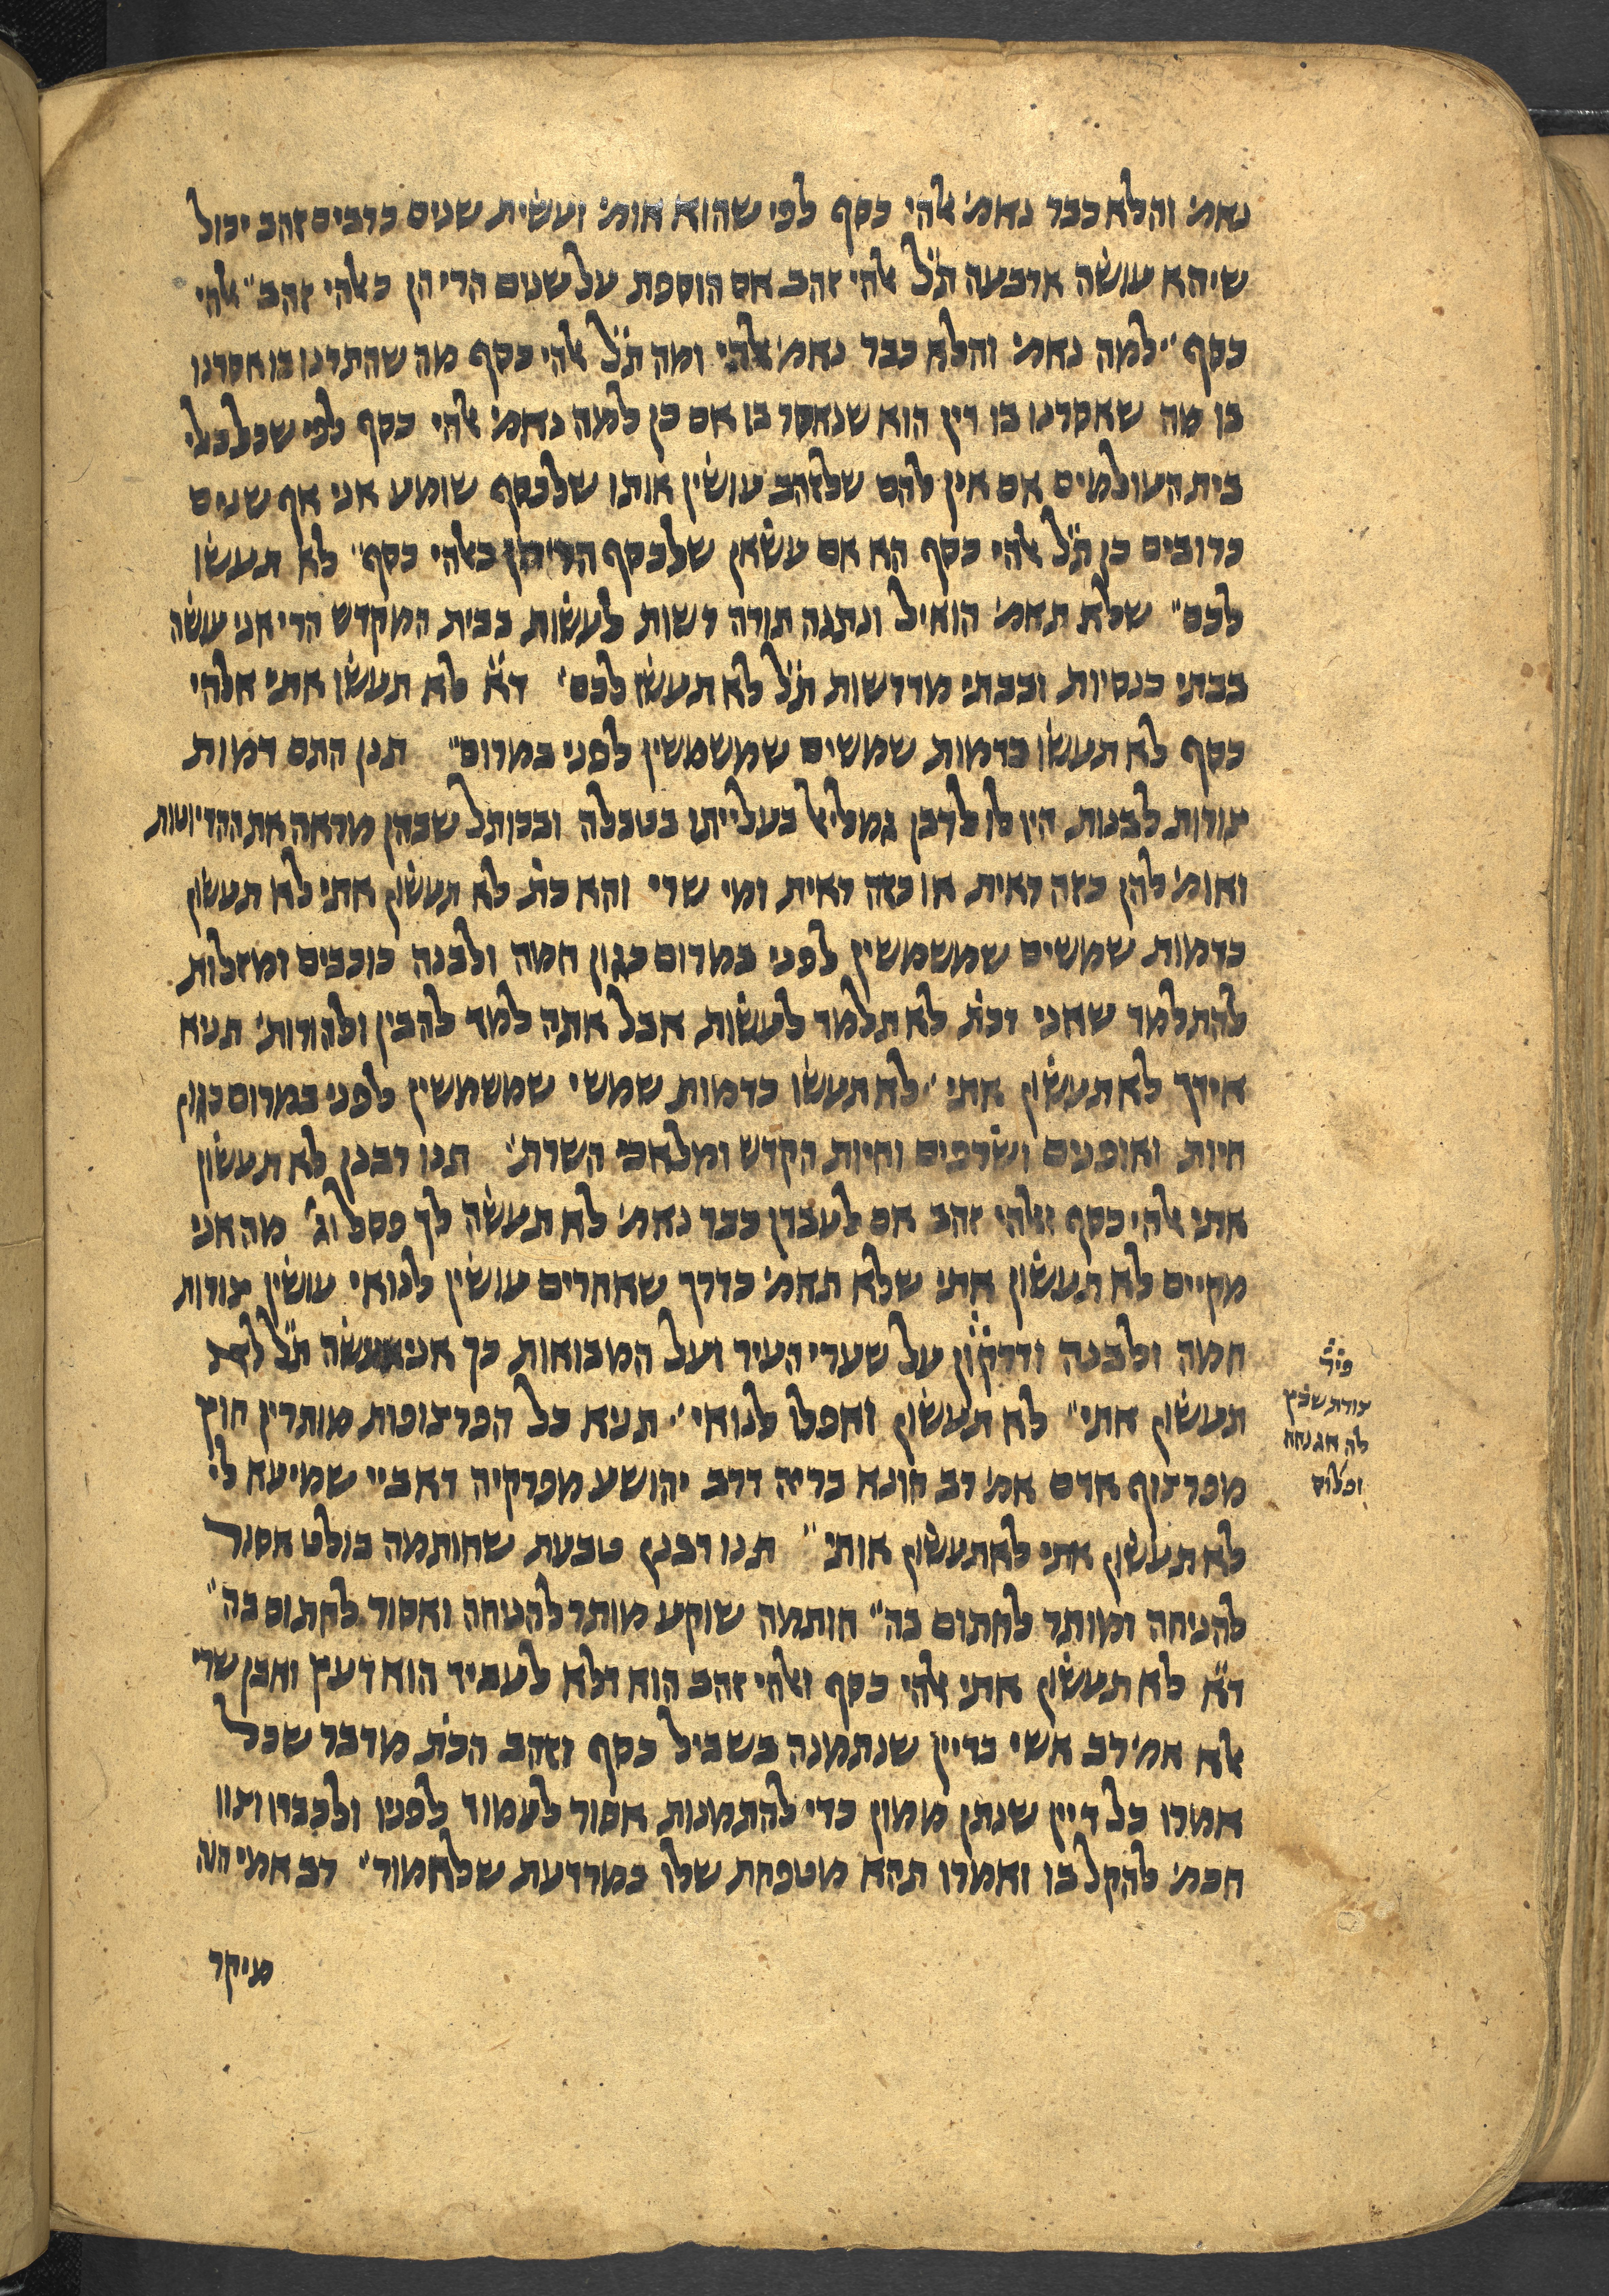 נאמ׳ והלא כבר נאמ׳ אלהי כסף לפי שהוא אומ׳ ועשית שנים כרבים זהב יכול
שיהא עושה ארבעה ת״ל אלהי זהב אם הוספת על שנים הרי הן כאלהי זהב״ אלהי
כסף״ למה נאמ׳ והלא כבר נאמ׳ אלהי ומה ת״ל אלהי כסף מה שהתרנו בו אסרנו
בו מה שאסרנו בו דין הוא שנאסר בו אם כן למה נאמ׳ אלהי כסף לפי שכל כלי
בית העולמים אם אין להם שלזהב עושין אותו שלכסף שומע אני אף שנים
כרובים כן ת״ל אלהי כסף הא אם עשאן שלכסף הרי הן כאלהי כסף״ לא תעשו
לכם״ שלא תאמ׳ הואיל ונתנה תורה רשות לעשות בבית המקדש הרי אני עושה
בבתי כנסיות ובבתי מדרשות ת״ל לא תעשו לכם׳ ד״א לא תעשו אתי אלהי
כסף לא תעשו כדמות שמשים שמשמשין לפני במרום״ תנן התם דמות
צורות לבנות היו לו לרבן גמליאל בעלייתו בטבלה ובכותל שבהן מראה את ההדיוטות
ואומ׳ להן כזה ראית או כזה ראית ומי שרי והא כת׳ לא תעשון אתי לא תעשון
כדמות שמשים שמשמשין לפני במרום כגון חמה ולבנה כוכבים ומזלות
להתלמד שאני דכת׳ לא תלמד לעשות אבל אתה למד להבין ולהורות׳ תניא
אידך לא תעשון אתי״ לא תעשו כדמות שמשי שמשמשין לפני במרום כגון
חיות ואופנים ושרפים וחיות הקדש ומלאכי השרת׳ תנו רבנן לא תעשון
אתי אלהי כסף ואלהי זהב אם לעבדן כבר נאמ׳ לא תעשה לך פסל וג׳ מה אני
מקיים לא תעשון אתי שלא תאמ׳ כדרך שאחרים עושין לנואי עושין צורות
חמה ולבנה ודרקון על שערי העיר ועל המבואות כך אני עושה ת״ל לא
תעשון אתי״ לא תעשון ואפלו לנואי״ תניא כל הפרצופות מותרין חוץ
מפרצוף אדם אמ׳ רב הונא בריה דרב יהושע מפרקיה דאביי שמיעא לי
לא תעשון אתי לא תעשון אותי״ תנו רבנן טבעת שחותמה בולט אסור
להניחה ומותר לחתום בה״ חותמה שוקע מותר להניחה ואסור לחתום בה״
ד״א לא תעשון אתי אלהי כסף ואלהי זהב הוא דלא לעביד הוא דעץ ואבן שרי
אלא אמ׳ רב אשי בדיין שנתמנה בשביל כסף וזהב הכת׳ מדבר שכל
אמרו כל דיין שנתן ממון כדי להתמנות אסור לעמוד לפניו ולכבדו וצוו
חכמ׳ להקל בו ואמרו תהא מטפחת שלו כמרדעת שלחמור״ רב אמי הוה
פיר׳
צורת שרץ
לה אגנחה
מיקר